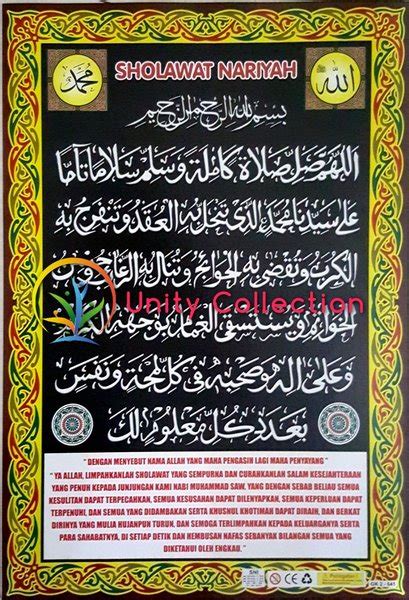 محمد
الله
SHOLAWAT NARIYAH
بسم الله الرحمن الرحيم
اللهم صل صلاة كاملة وسلم سلاما تاما
على سيدنا محمد الذي تنحل به العقد وتنفرج به
الكرب وتقضى به الحوائج وتنال به الرغائب
Unity Collection
الخواتم ويستسقى الغمام بوجهه الكريم
وعلى اله وصحبه في كل لمحة ونفس
بعدد كل معلوم لك
" DENGAN MENYEBUT NAMA ALLAH YANG MAHA PENGASIH LAGI MAHA PENYAYANG "
" YA ALLAH, LIMPAHKANLAH SHOLAWAT YANG SEMPURNA DAN CURAHKANLAH SALAM KESEJAHTERAAN
YANG PENUH KEPADA JUNJUNGAN KAMI NABI MUHAMMAD SAW, YANG DENGAN SEBAB BELIAU SEMUA
KESULITAN DAPAT TERPECAHKAN, SEMUA KESUSAHAN DAPAT DILENYAPKAN, SEMUA KEPERLUAN DAPAT
TERPENUHI, DAN SEMUA YANG DIDAMBAKAN SERTA KHUSNUL KHOTIMAH DAPAT DIRAIH, DAN BERKAT
DIRINYA YANG MULIA HUJANPUN TURUN, DAN SEMOGA TERLIMPAHKAN KEPADA KELUARGANYA SERTA
PARA SAHABATNYA, DI SETIAP DETIK DAN HEMBUSAN NAFAS SEBANYAK BILANGAN SEMUA YANG
DIKETAHUI OLEH ENGKAU. "
SNI
CE
GK 2 - 541